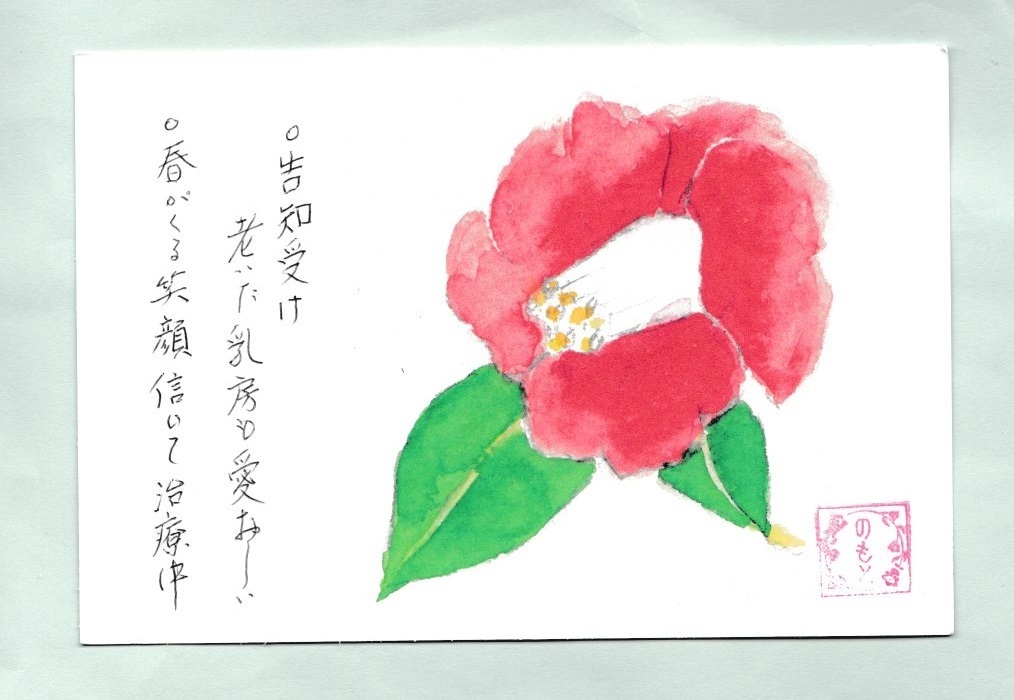 ○告知受け
老いた乳房も愛おしい
○春がくる笑顔信じて治療中
のもと